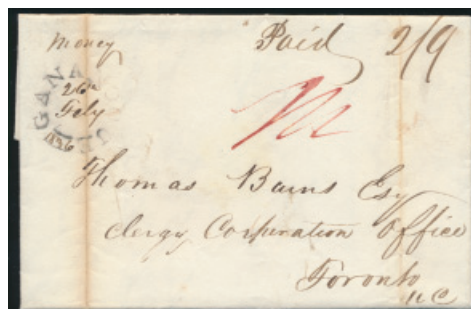 Money Paid 2/9
26th
July
Thomas Bains Esq
Clergy Corporation Office
Toronto
U C